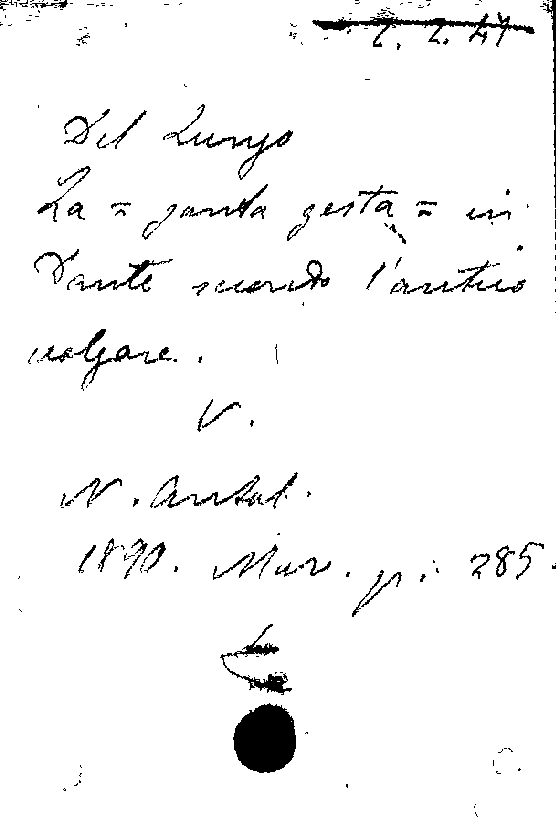 2. 2. 47
Del Lungo
La = santa gesta = in
Dante secondo l'antico
volgare.
V.
N. Antol.
1890. Mar. p. 285.